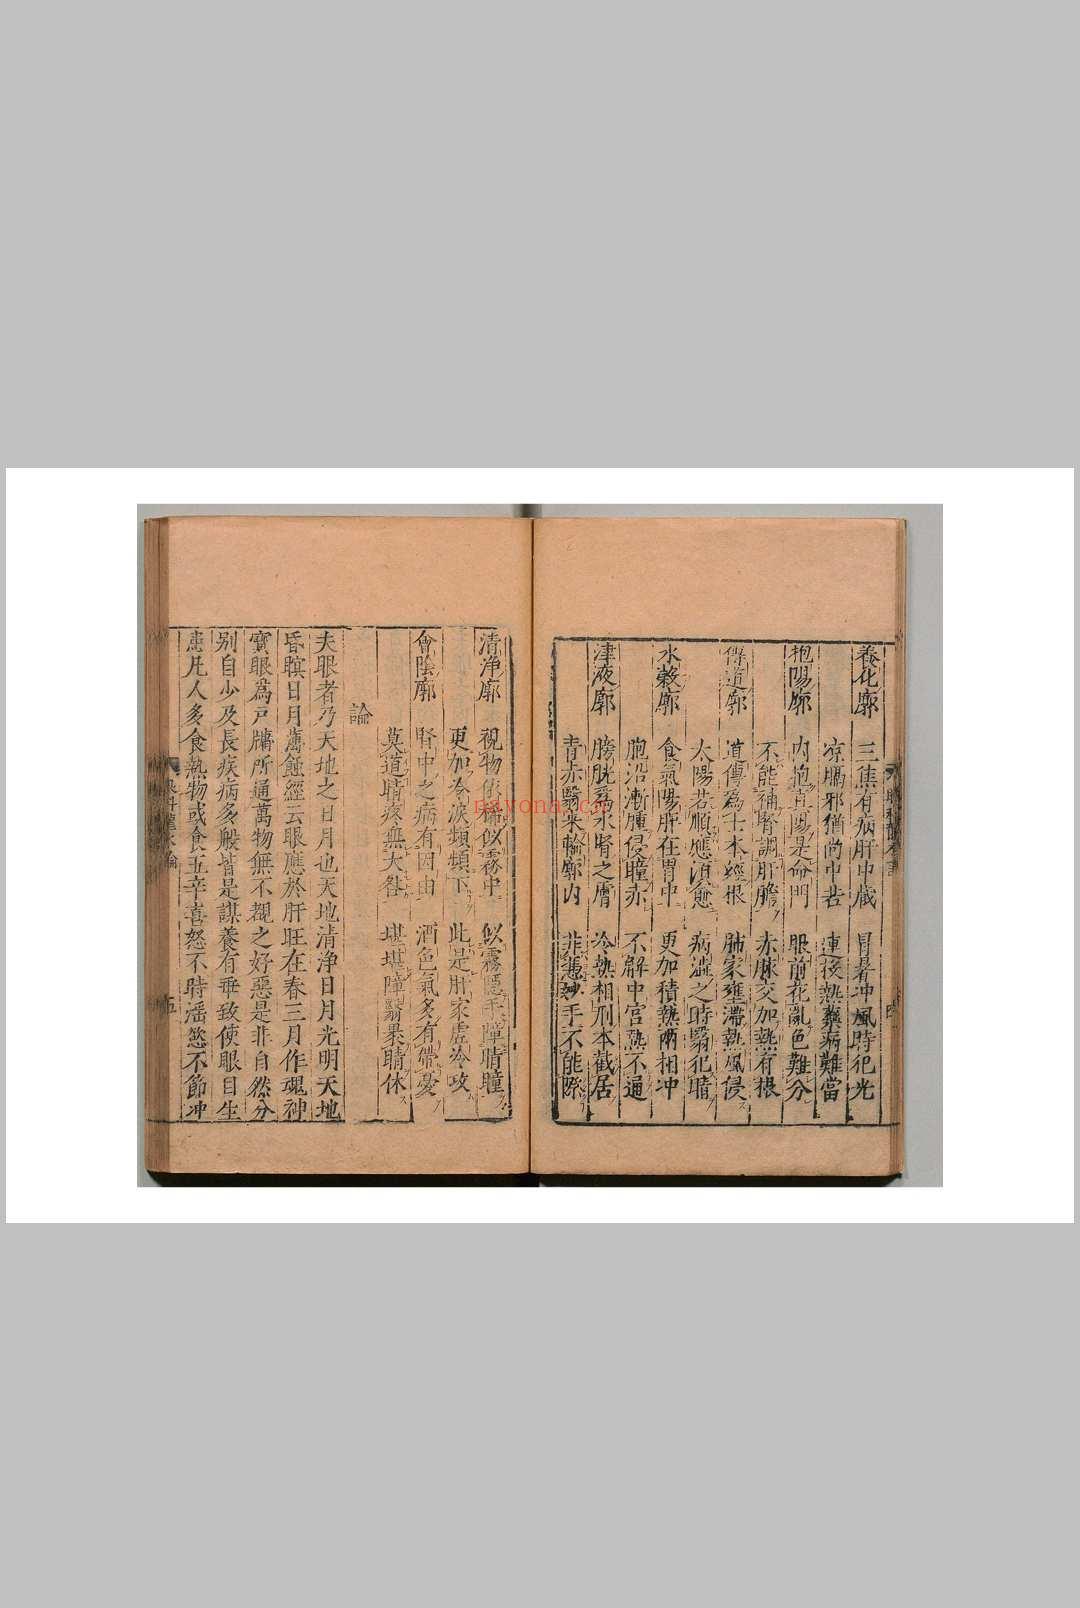 養化廓 三焦有病肝中藏 冒暑冲風時犯光
凉膈邪猶尚中若 連後熱藥病難當
抱陽廓 内抱真陽是命門 眼前花亂色難分
不能補腎調肝膽 赤脉交加熱有根
傳道廓 道傳為土木經根 肺家壅滯熱風侵
太陽若順應湏愈 病澁之時翳犯睛
水穀廓 食氣陽肝在胃中 更加積熱兩相冲
胞沿漸腫侵瞳赤 不解中宫熱不通
津液廓 膀胱爲水腎之膚 冷熱相刑本截居
青赤翳來輪廓内 非憑妙手不能除
清净廓 視物依俙似霧中 似霧隠手障睛瞳
更加冷淚頻頻下 此是肝家虚冷攻
會陰廓 腎中之病有因由 酒色氣多有帶憂
莫道睛疼無大咎 堪堪障翳累睛休
論
夫眼者乃天地之日月也天地清淨日月光明天地
昏暝日月薄蝕經云眼應於肝旺在春三月作魂神
寶眼為戸牗所通萬物無不覩之好惡是非自然分
别自少及長疾病多般皆是謀養有乖致使眼目生
患凡人多食熱物或食五辛喜怒不時滛慾不節冲
五
nayona.cn